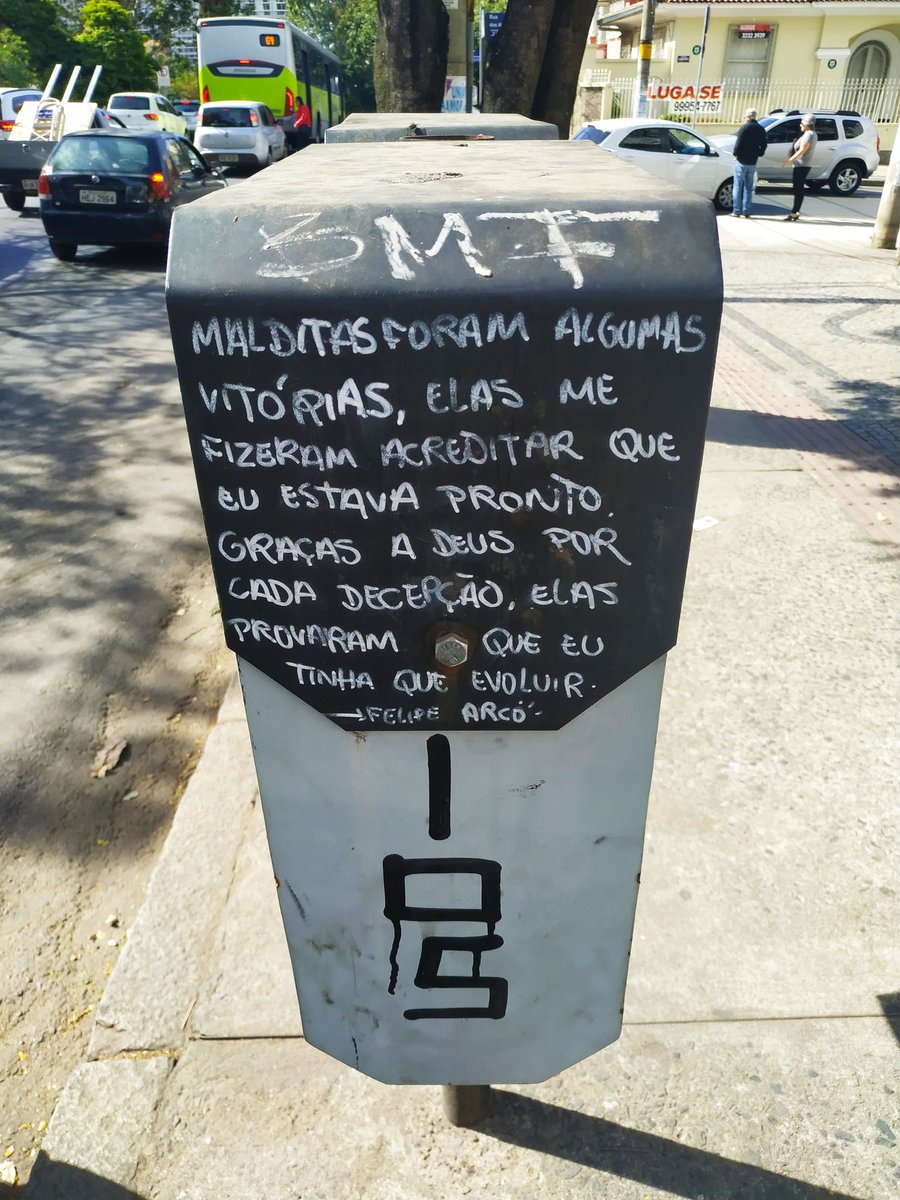 64
Rua
LUGA-SE
99954-7767
3232 3939
HEJ 2964
BMF
MALDITAS FORAM ALGUMAS
VITÓRIAS, ELAS ME
FIZERAM ACREDITAR QUE
EU ESTAVA PRONTO.
GRAÇAS A DEUS POR
CADA DECEPÇÃO, ELAS
PROVARAM QUE EU
TINHA QUE EVOLUIR.
→FELIPE ARCÓ-